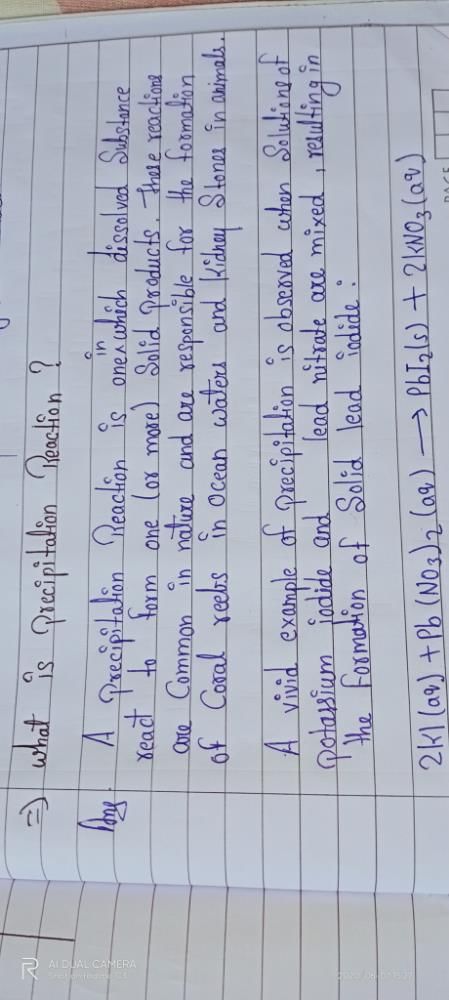 =) what is precipitation Reaction ?
Ans. A precipitation Reaction is one in which dissolved Substance
react to form one (or more) Solid products. These reactions
are Common in nature and are responsible for the formation
of Coral reebs in Ocean waters and kidney Stones in animals.
A vivid example of precipitation is observed when Solutions of
potassium iodide and lead nitrate are mixed, resulting in
the formation of Solid lead iodide:
2KI(aq) + Pb(NO3)2(aq) → PbI2(s) + 2KNO3(aq)
PAGE
AI DUAL CAMERA